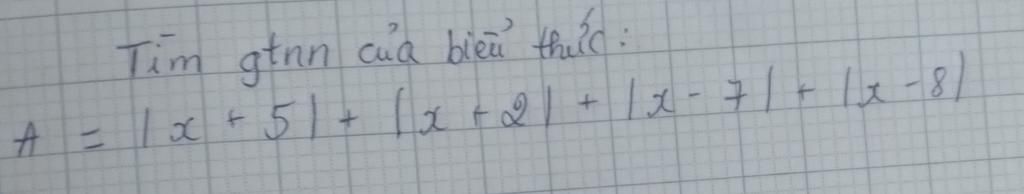 Tìm gtnn của biểu thức:
A = |x + 5| + |x + 2| + |x - 7| + |x - 8|